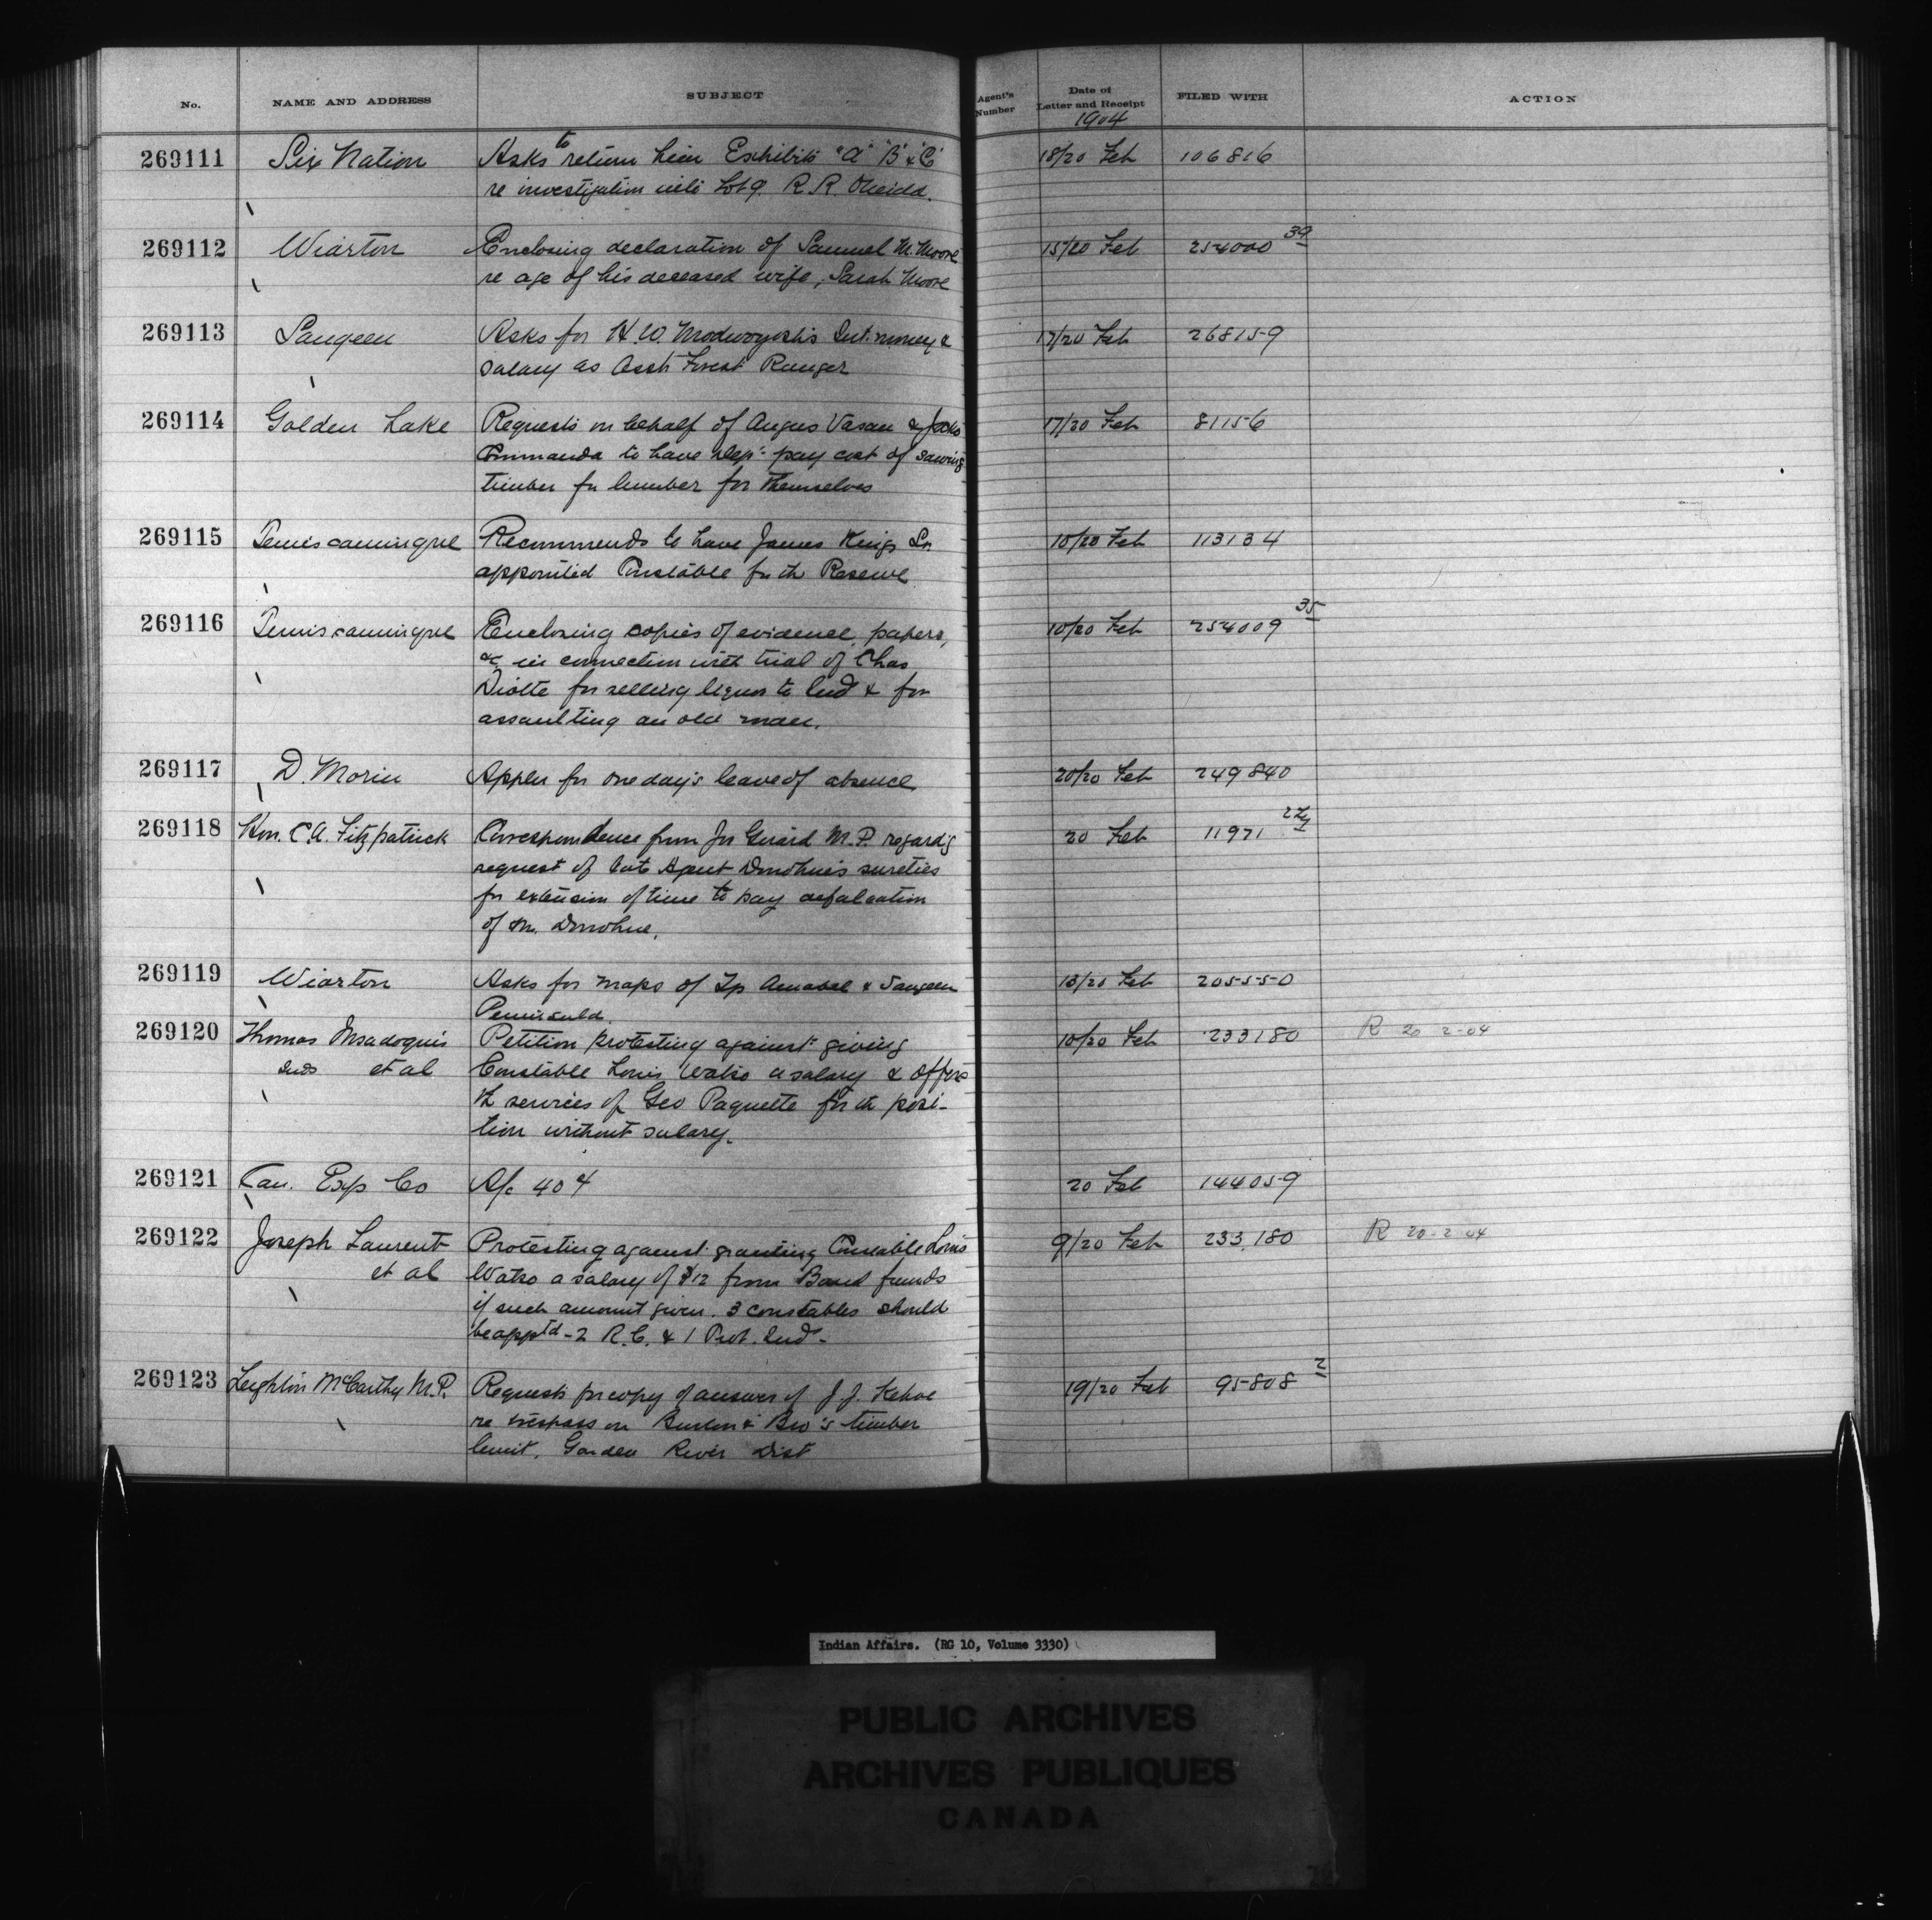 No.
NAME AND ADDRESS
SUBJECT
Agent's Number
Date of Letter and Receipt
FILED WITH
ACTION
1904
269111 Six Nation Asks to return him Exhibits "A" "B" & "C" 18/20 Feb 106816
re investigation into Lot 9. R.R. Oneida.
269112 Wiarton Enclosing declaration of Samuel M. Moore 15/20 Feb 254000 39
re age of his deceased wife, Sarah Moore
269113 Saugeen Asks for H.W. Int. money & 17/20 Feb 268159
salary as Asst Forest Ranger
269114 Golden Lake Requests on behalf of Angus Vasau & Jocko 17/20 Feb 81156
Commanda to have Dept pay cost of sawing
timber for lumber for themselves
269115 Temiscamingue Recommends to have James King Sr. 10/20 Feb 113134
appointed Constable for th Reserve
269116 Temiscamingue Enclosing copies of evidence, papers, 10/20 Feb 254009 35
&c in connection with trial of Chas
Diotte for selling liquor to Ind & for
assaulting an old man.
269117 D. Morin Applies for one day's leave of absence 20/20 Feb 249840
269118 Hon. C.A. Fitzpatrick Correspondence from Jos Girard M.P. regard'g 20 Feb 11971
request of late Agent Donohue's sureties
for extension of time to pay defalcation
of Mr. Donohue.
269119 Wiarton Asks for maps of Tp Amabel & Saugeen 13/20 Feb 205550
Peninsula.
269120 Thomas Msadoquis Petition protesting against giving 10/20 Feb 233180 R 20-2-04
Inds et al Constable Louis Watso a salary & offers
th services of Geo Paquette for th posi-
tion without salary.
269121 Can. Exp Co A/c 40 ¢ 20 Feb 144059
269122 Joseph Laurent Protesting against granting Constable Louis 9/20 Feb 233,180 R 20-2-04
et al Watso a salary of $12 from Band funds
if such amount given. 3 constables should
be app'td - 2 R.C. & 1 Prot. Ind.
269123 Leighton McCarthy M.P. Requests for copy of answer of J.J. Kehoe 19/20 Feb 95808 2
re trespass on Burton & Bro's timber
limit. Garden River Dist
Indian Affairs. (RG 10, Volume 3330)
PUBLIC ARCHIVES
ARCHIVES PUBLIQUES
CANADA